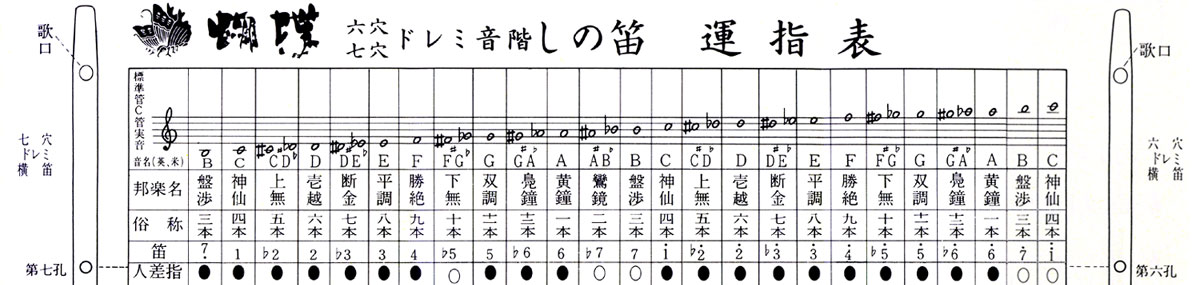 蝴蝶 六穴 七穴 ドレミ音階しの笛 運指表
歌口
七穴
ドレミ
横笛
第七孔
標準管C管実音
音名(英、米) B C C♯D♭ D D♯E♭ E F F♯G♭ G G♯A♭ A A♯B♭ B C C♯D♭ D D♯E♭ E F F♯G♭ G G♯A♭ A B C
邦楽名 盤渉 神仙 上無 壱越 断金 平調 勝絶 下無 双調 鳧鐘 黄鐘 鸞鏡 盤渉 神仙 上無 壱越 断金 平調 勝絶 下無 双調 鳧鐘 黄鐘 盤渉 神仙
俗称 三本 四本 五本 六本 七本 八本 九本 十本 十一本 十二本 一本 二本 三本 四本 五本 六本 七本 八本 九本 十本 十一本 十二本 一本 三本 四本
笛 7̣ 1 ♭2 2 ♭3 3 4 ♭5 5 ♭6 6 ♭7 7 1̇ ♭2̇ 2̇ ♭3̇ 3̇ 4̇ ♭5̇ 5̇ ♭6̇ 6̇ 7̇ 1̈
人差指 ● ● ● ● ● ● ● ○ ● ● ● ○ ○ ● ● ● ● ● ● ● ● ● ● ○ ○
歌口
六穴
ドレミ
横笛
第六孔